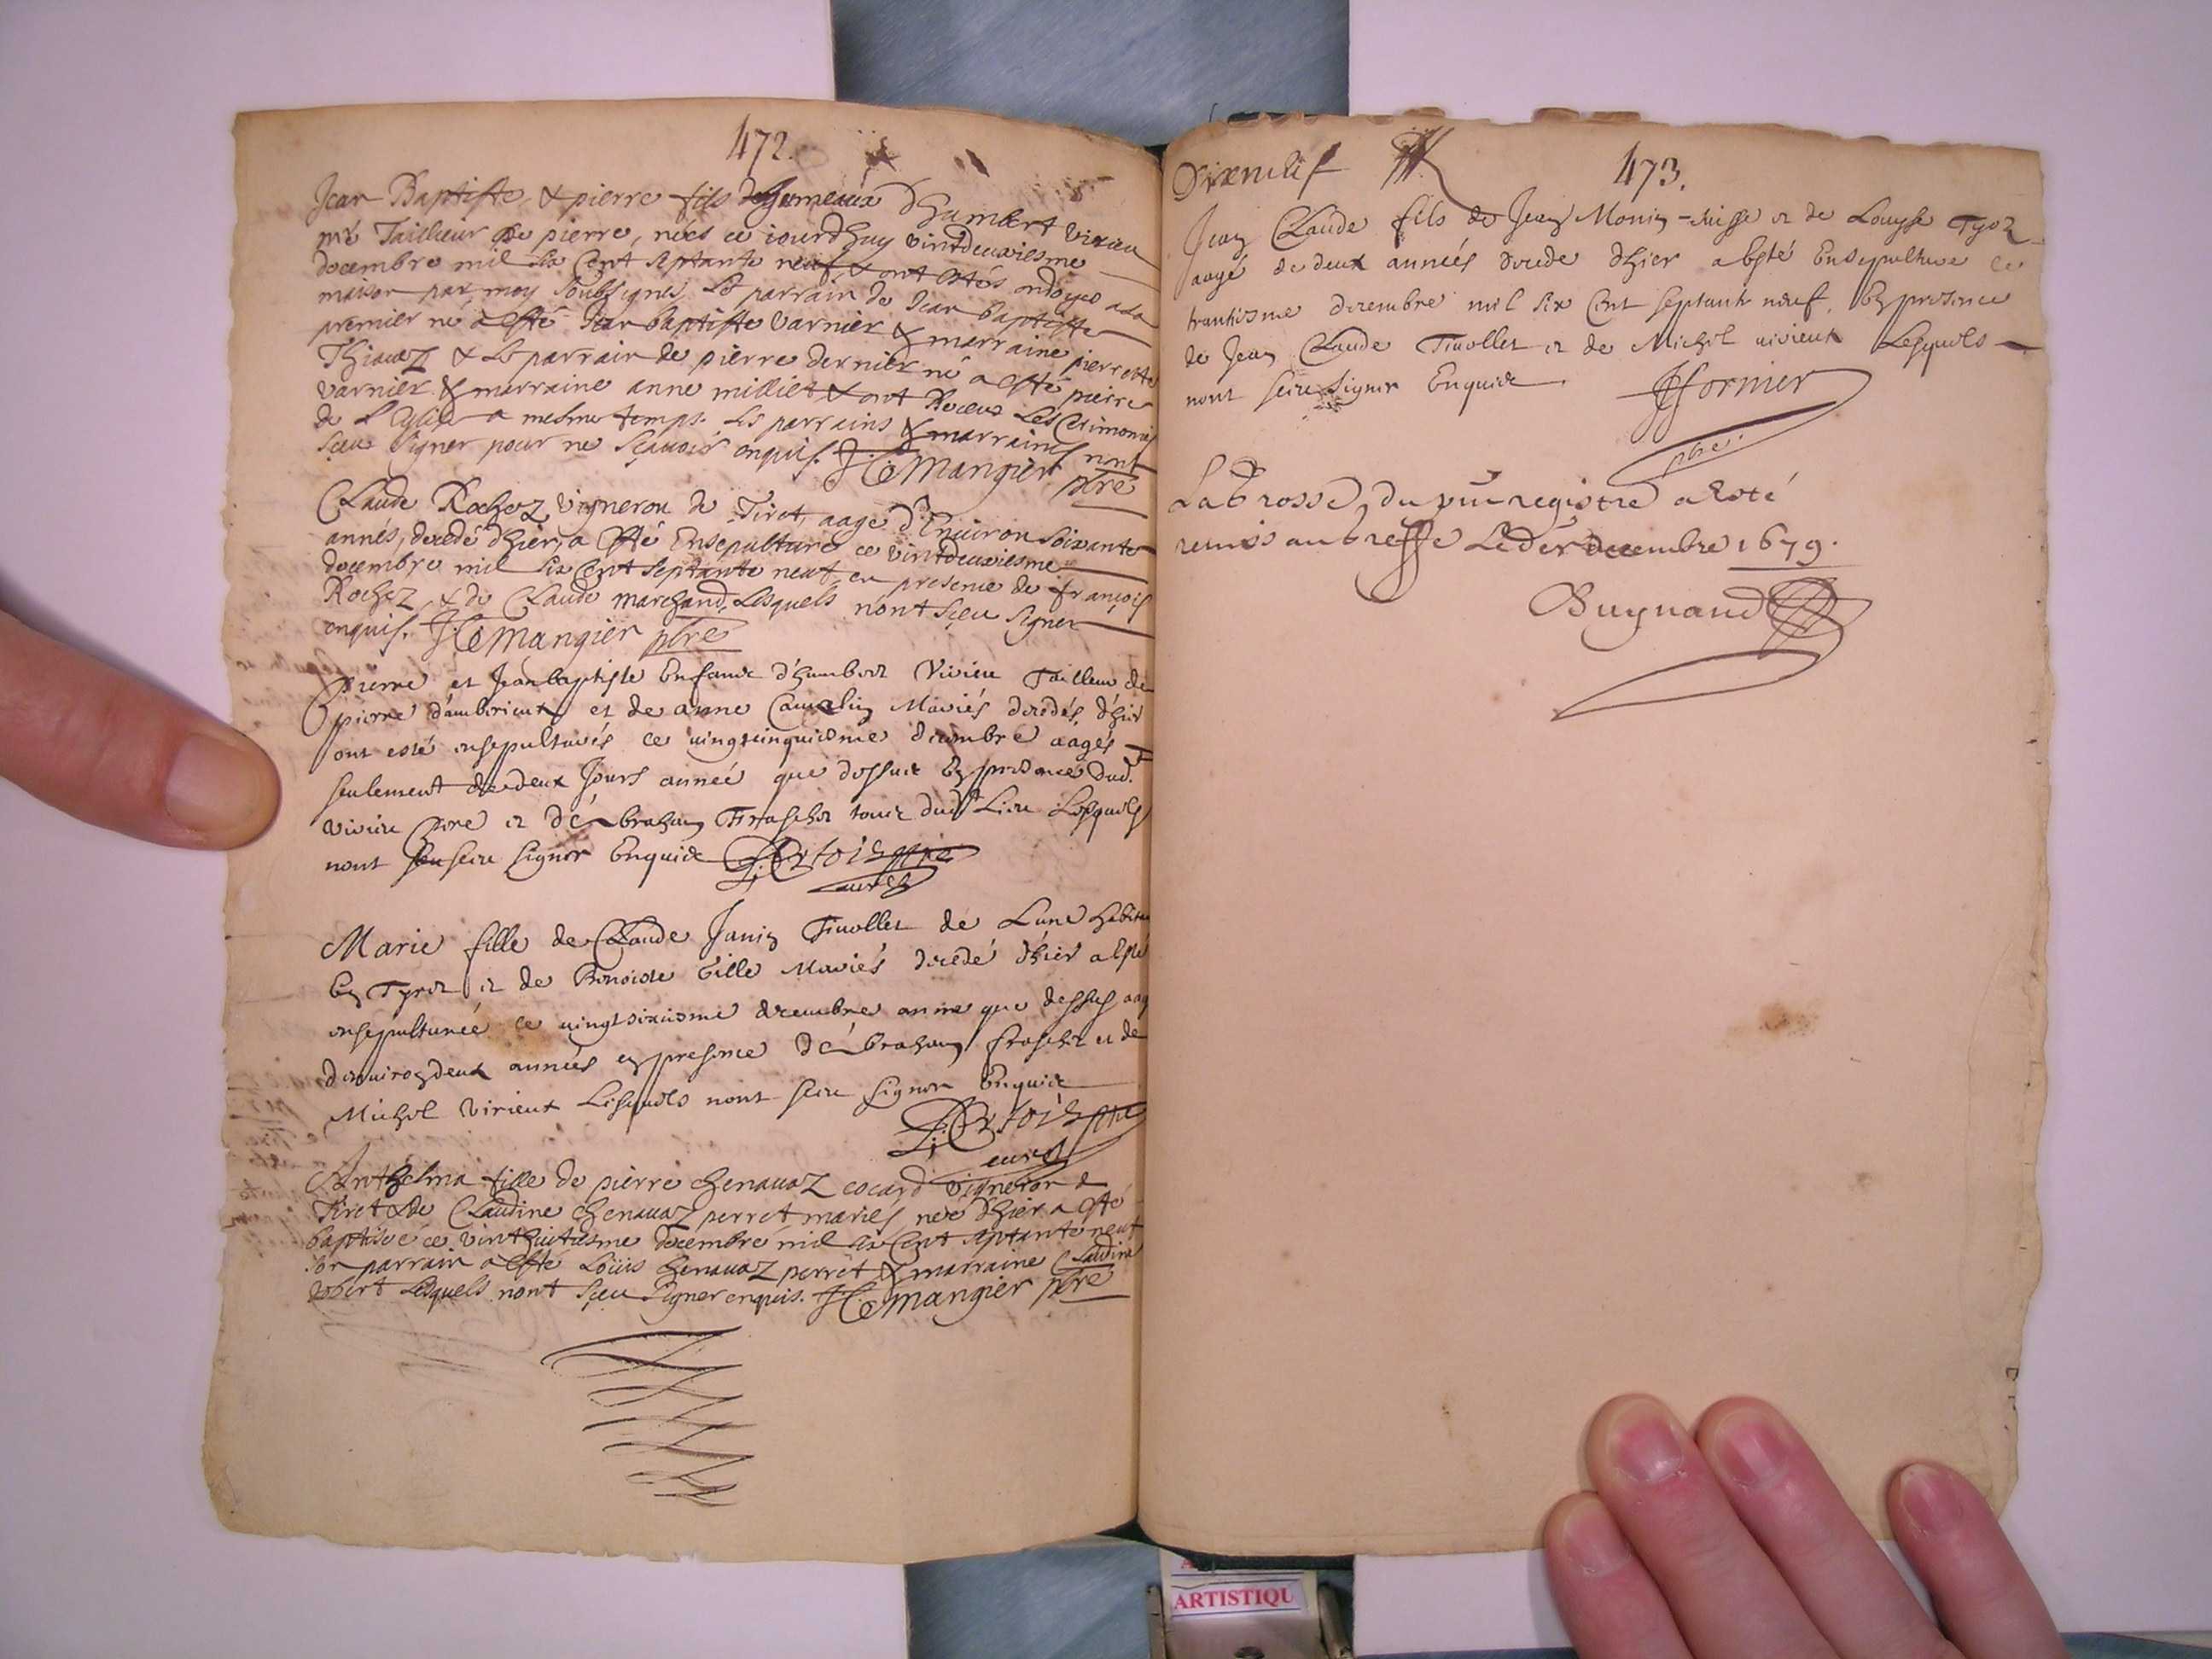 472.
Jean Baptiste, & pierre fils Jhumeaux d'humbert Virieu
mre Taillieur de pierre, nées ce iourdhuy vintdeuxiesme
decembre mil six Cent septante neuf, & ont estés ondoyes a la
maison par moy soubsigné, Le parrain de Jean Baptiste
premier né à esté Jean baptiste Varnier & marraine pierrette
Thiauoz & Le parrain de pierre dernier né a esté pierre
Varnier & marraine anne milliet & ont Receus Les Cerimonies
de L'Eglise a mesme temps. Les parrains & marraines nont
sceu signer pour ne sçavoir enquis. Mangier pbre
Claude Rochez vigneron de Tiret, aagé d'Enuiron soixante
annés, decedé dhier, a Esté Ensepulturé ce vintdeuxiesme
decembre mil six Cent septante neuf, en presence de françois
Rochez, & de Claude marchand, Lesquels n'ont sçeu signer
enquis. Mangier pbre
pierre et Jeanbaptiste Enfans d'humbert Virieu Tailleur de
pierre d'ambirieux et de anne Mariés decedés d'hier
ont esté ensepulturés ce vingtcinquiesme decembre aagés
seulement de deux Jours année que dessus En presence dud.
Virieu pere et d'Abraham Frascher tous dud Lieu Lesquels
nont sceu signer Enquis
Marie fille de Claude Janin Tiuollet de Lune habitant
En Tyret et de Benoiste Mariés decedé d'hier a Esté
ensepulturée ce vingtsixiesme decembre annee que dessus aag
denviron deux années en presence d'Abraham frascher et de
Michel Virieux Lesquels nont sceu signer Enquis
Anthelma fille de pierre Chenauaz cocard vigneron de
Tiret & de Claudine Chenauaz perret mariés, neé d'hier a esté
baptiseé ce vinthuitiesme decembre mil six Cent septante neuf
son parrain a esté Loüis Chenauaz perret & marraine Claudine
Robert Lesquels nont sçeu signer enquis. Mangier pbre
Dixneuf 473.
Jean Claude fils de Jean Monin suisse et de Louyse Tyoz
aagé de deux années decede dhier a Esté Ensepulturé ce
trantiesme decembre mil six Cent septante neuf. En presence
de Jean Claude Tiuollet et de Michel virieux Lesquels
nont sceu signer Enquis. Fornier
pbre.
La Grosse du pnt registre a Esté
remis au Greffe Le der decembre 1679.
Buynand
ARTISTIQU